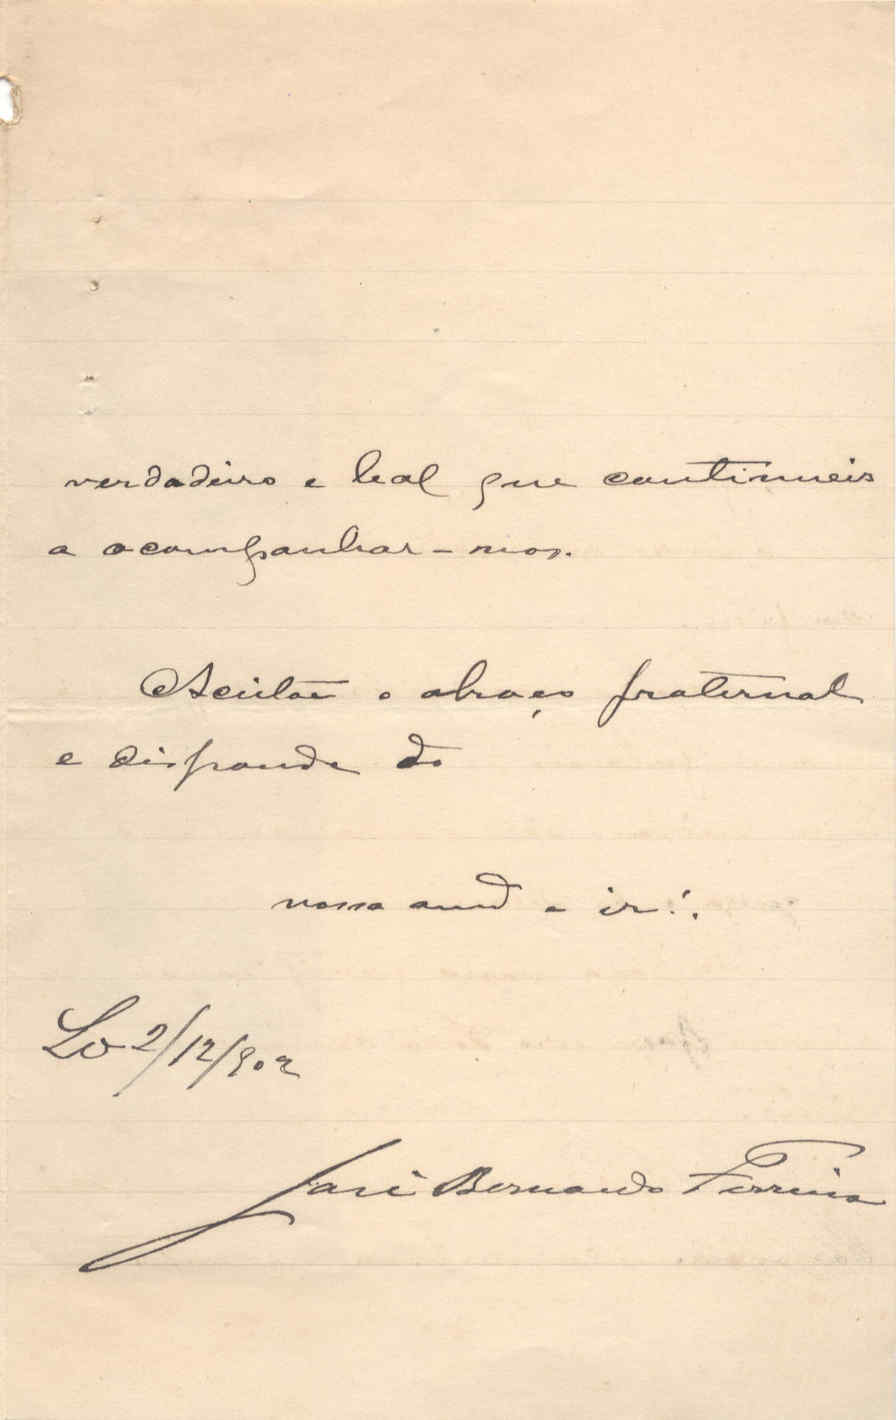 verdadeiro e leal que continueis
a acompanhar-nos.
Aceitae o abraço fraternal
e disponde do
vosso amº e ir∴
Lxª 2/12/902
José Bernardo Ferreira